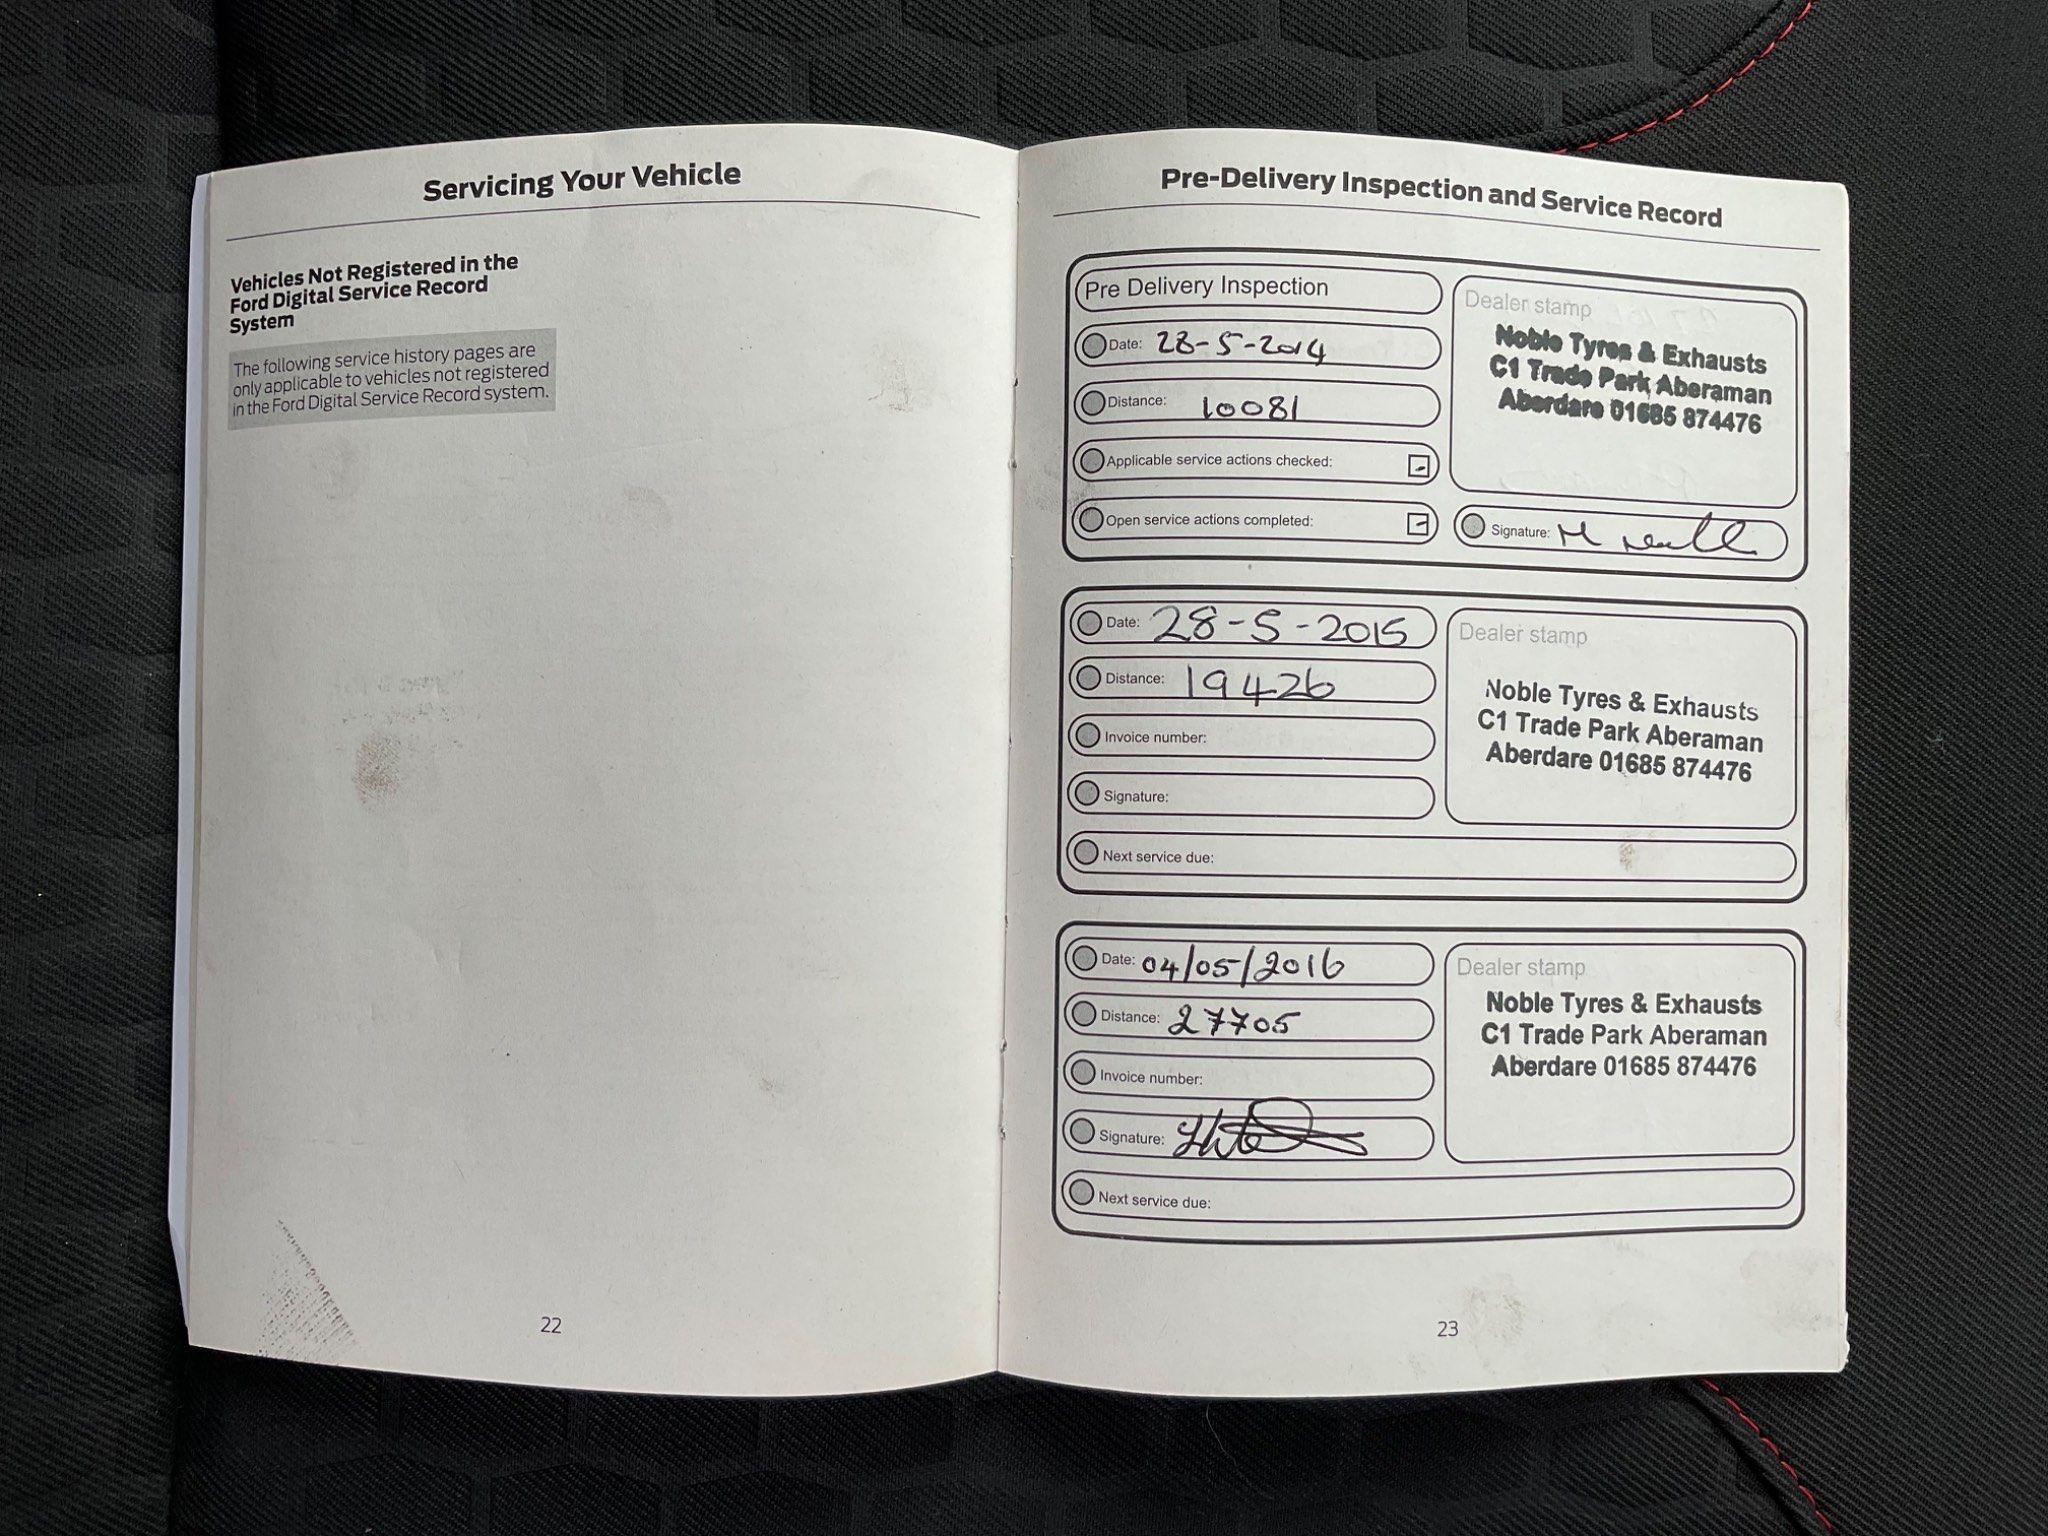 Servicing Your Vehicle
Vehicles Not Registered in the
Ford Digital Service Record
System
The following service history pages are
only applicable to vehicles not registered
in the Ford Digital Service Record system.
22
Pre-Delivery Inspection and Service Record
Pre Delivery Inspection
Date: 28-5-2014
Distance: 10081
Applicable service actions checked:
Open service actions completed:
Dealer stamp
Noble Tyres & Exhausts
C1 Trade Park Aberaman
Aberdare 01685 874476
Signature:
Date: 28-5-2015
Distance: 19426
Invoice number:
Signature:
Next service due:
Dealer stamp
Noble Tyres & Exhausts
C1 Trade Park Aberaman
Aberdare 01685 874476
Date: 04/05/2016
Distance: 27705
Invoice number:
Signature:
Next service due:
Dealer stamp
Noble Tyres & Exhausts
C1 Trade Park Aberaman
Aberdare 01685 874476
23